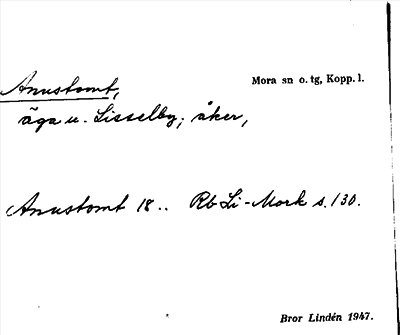 Anustomt,
Mora sn o. tg, Kopp. l.
äga u. Lisselby; åker,
Anustomt 18.. Rb Li-Mork s. 130.
Bror Lindén 1947.